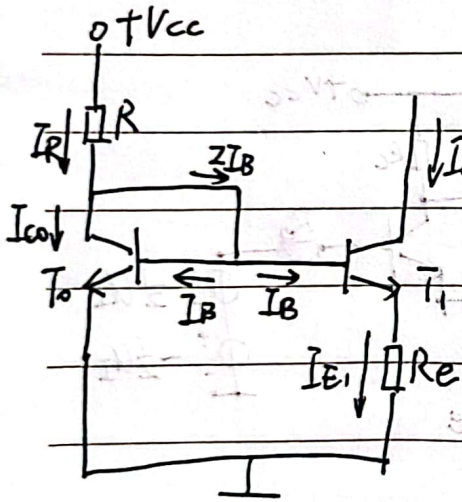 +Vcc
R
IR
2IB
Ico
T0
IB
IB
T1
IE1
Re